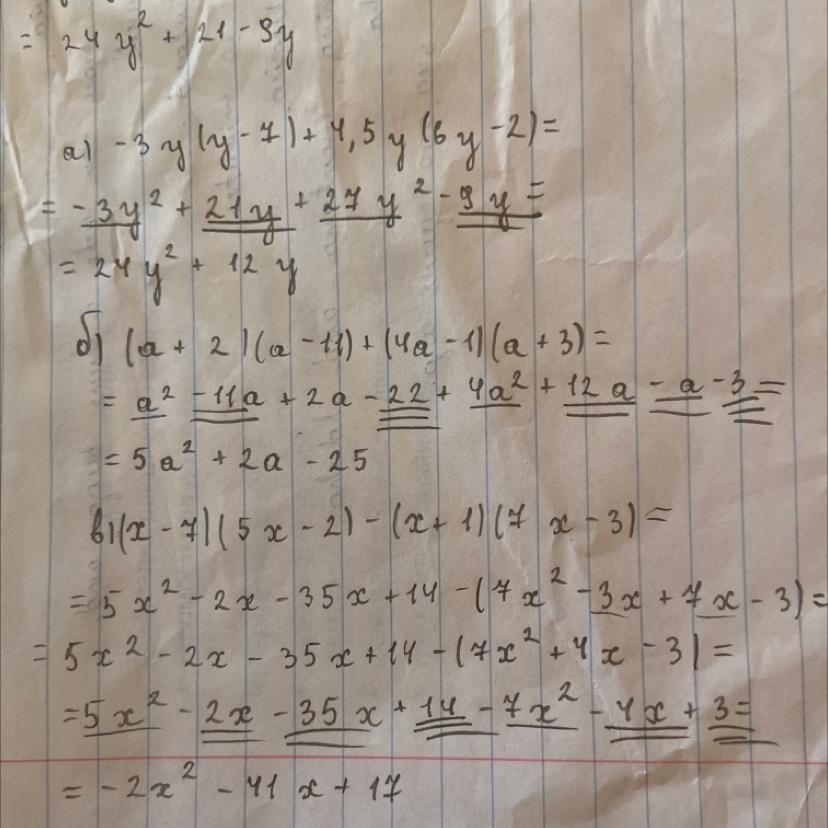 = 24y² + 21 - 9y
а) -3y(y-7) + 4,5y(6y-2) =
= -3y² + 21y + 27y² - 9y =
= 24y² + 12y
б) (a + 2)(a - 11) + (4a - 1)(a + 3) =
= a² - 11a + 2a - 22 + 4a² + 12a - a - 3 =
= 5a² + 2a - 25
в) (x - 7)(5x - 2) - (x + 1)(7x - 3) =
= 5x² - 2x - 35x + 14 - (7x² - 3x + 7x - 3) =
= 5x² - 2x - 35x + 14 - (7x² + 4x - 3) =
= 5x² - 2x - 35x + 14 - 7x² - 4x + 3 =
= -2x² - 41x + 17